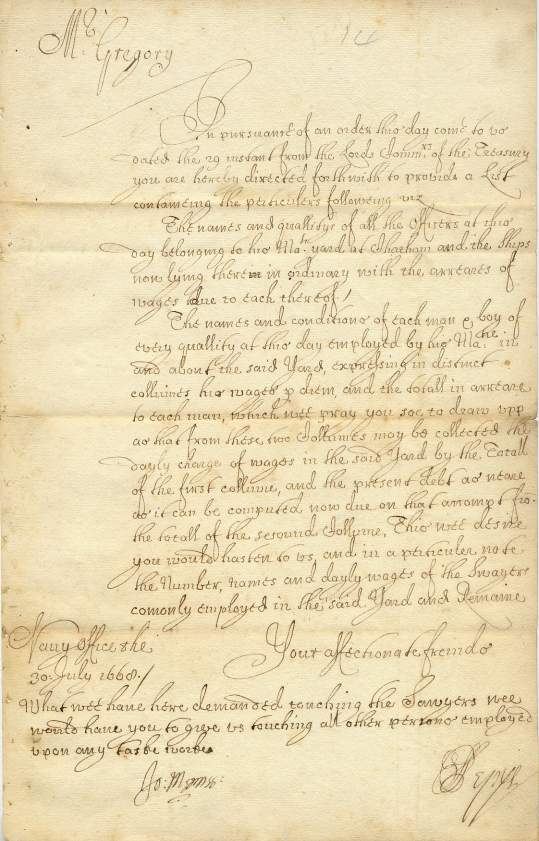 Mr Gregory
14
In pursuance of an order this day come to us
dated the 29 instant from the Lords Commrs of the Treasury
you are hereby directed forthwith to provide a List
containeing the perticulers following viz
The names and quallitys of all the Officers at this
day belonging to his Maties yard at Chatham and the Ships
now lying therein in ordinary with the arreares of
wages due to each thereof /
The names and conditions of each man & boy of
every quallity at this day employed by his Matie in
and about the said Yard, expressing in distinct
collumes his wages p diem, and the totall in arreare
to each man, which wee pray you soe to draw upp
as that from these two Collumes may be collected the
dayly charge of wages in the said Yard by the Totall
of the first collume, and the present debt as neare
as it can be computed now due on that accompt fro
the totall of the second Collume, This wee desire
you would hasten to us, and in a perticuler note
the Number, names and dayly wages of the Sawyers
comonly employed in the said Yard and Remaine
Navy Office the
30: July 1668 /
Your affectionate freinds
What wee have here demanded touching the Sawyers wee
would have you to give us touching all other persons employed
upon any taske worke
Jo: Mennes:
S Pepys